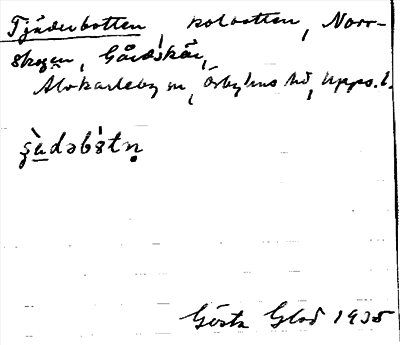 Tjäderbotten, kolbotten, Norr-
skogen, Gårdskär,
Älvkarleby sn, Örbyhus hd, Upps. l.
Gösta Glad 1935